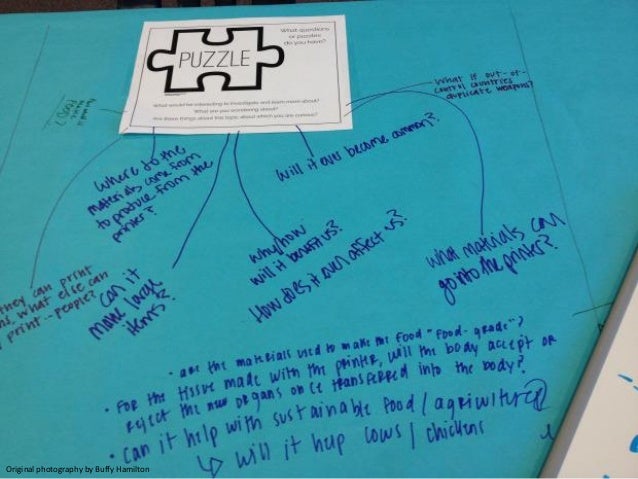 What questions
or puzzles
do you have?
PUZZLE
What would be interesting to investigate and learn more about?
What are you wondering about?
Are there things about this topic about which you are curious?
What if out-of-
control countries
duplicate weapons?
FOOD?
Where to the
materials come from
to produce from the
printer?
Will it ever become common?
they can print
what else can
print - people?
Can it
make large
items?
Why/how
will it benefit us?
How does it even affect us?
What materials can
go into the printer?
• are the materials used to make the food "food-grade"?
• For the tissue made with the printer, will the body accept or
reject the new organs once transferred into the body?
• Can it help with sustainable food / agriculture?
↳ will it help cows / chickens
Original photography by Buffy Hamilton